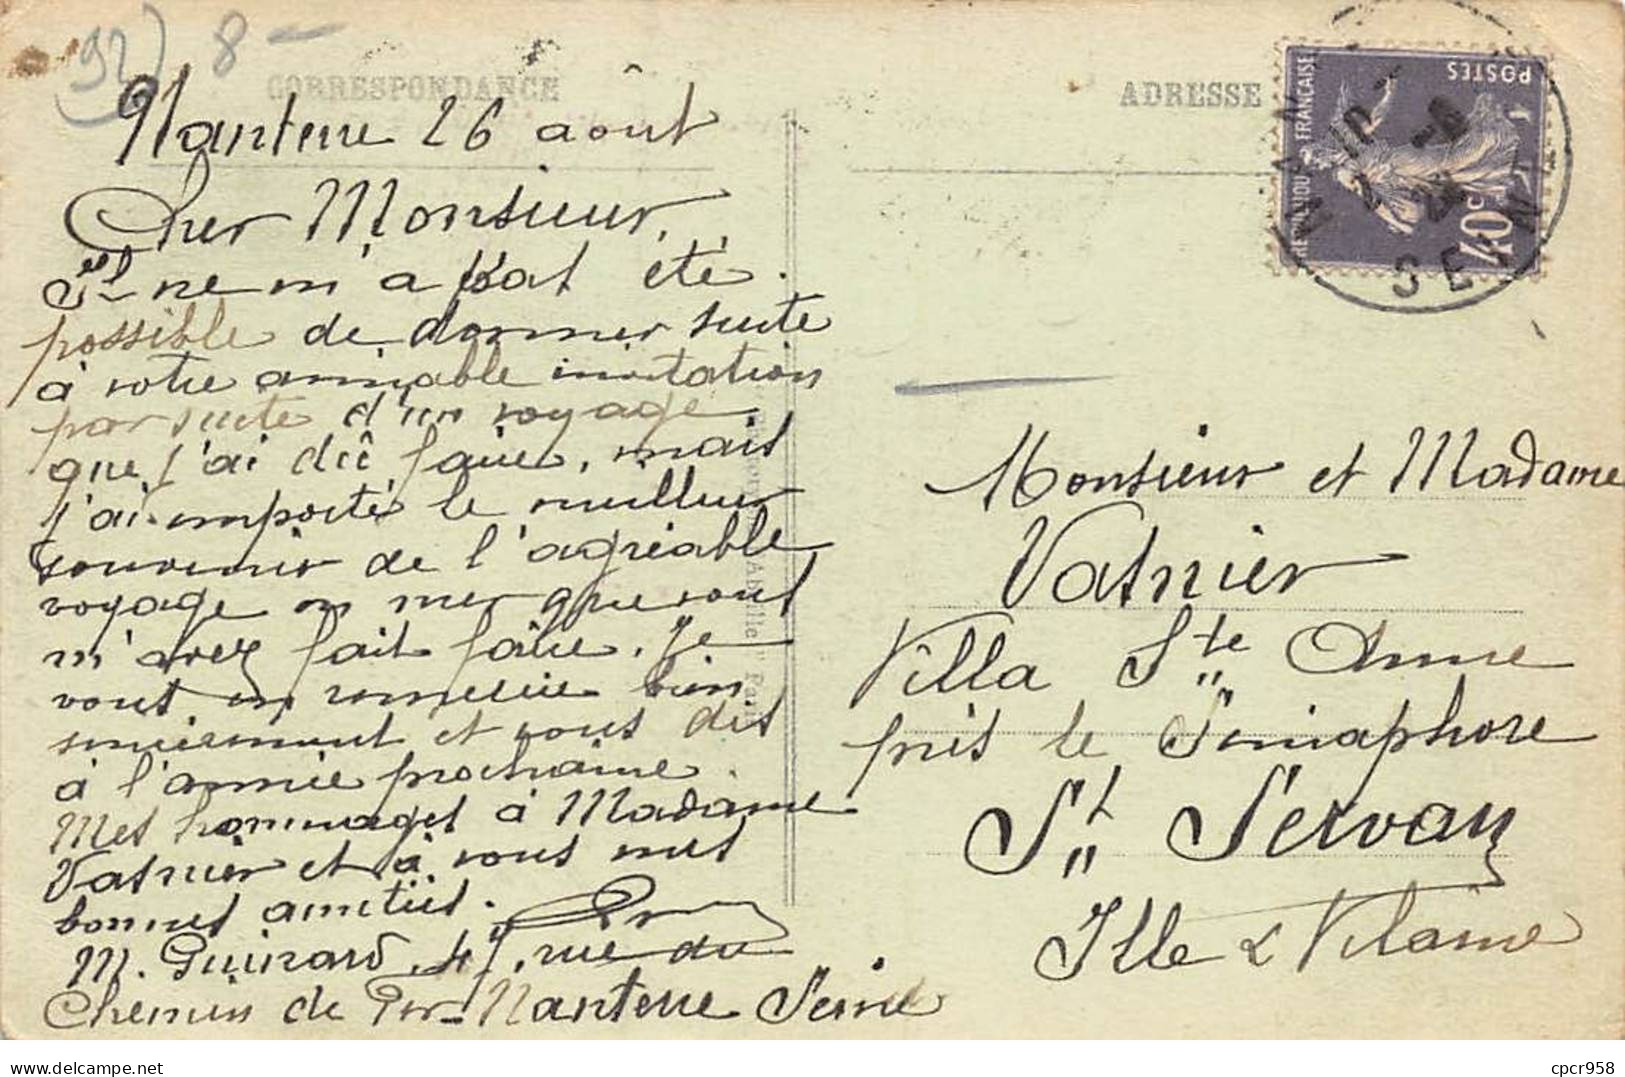 92) 8 -
CORRESPONDANCE
Nanterre 26 août
Cher Monsieur,
Il ne m'a pas été
possible de donner suite
à votre aimable invitation
par suite d'un voyage
que j'ai dû faire, mais
j'ai emporté le meilleur
souvenir de l'agréable
voyage en mer que vous
m'avez fait faire. Je
vous en remercie bien
sincèrement et vous dis
à l'année prochaine.
Mes hommages à Madame
Vatnier et à vous mes
bonnes amitiés.
M. Guinard, 47, rue du
Chemin de Fer - Nanterre Seine
Abeille Paris
ADRESSE
REPUBLIQUE FRANÇAISE
POSTES
40c
NANTERRE
SEINE
Monsieur et Madame
Vatnier
Villa Ste Anne
près le Sémaphore
St Servan
Ille & Vilaine
cpcr958